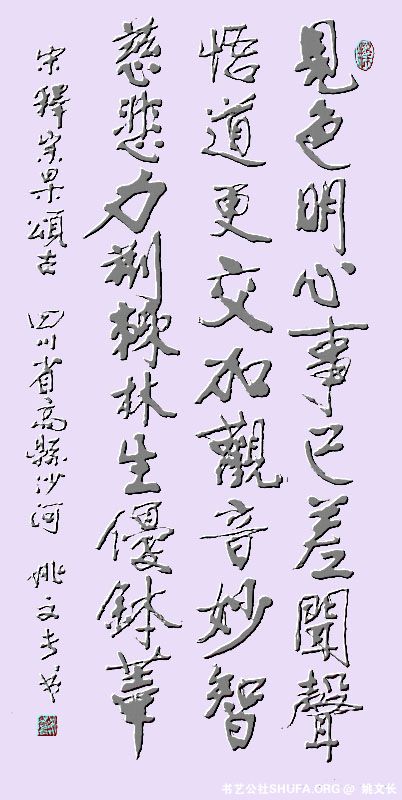 見色明心事已差聞聲
悟道更交加觀音妙智
慈悲力荊棘林生優鉢華
宋釋宗杲頌古 四川省高縣沙河 姚文長書
书艺公社SHUFA.ORG @ 姚文长